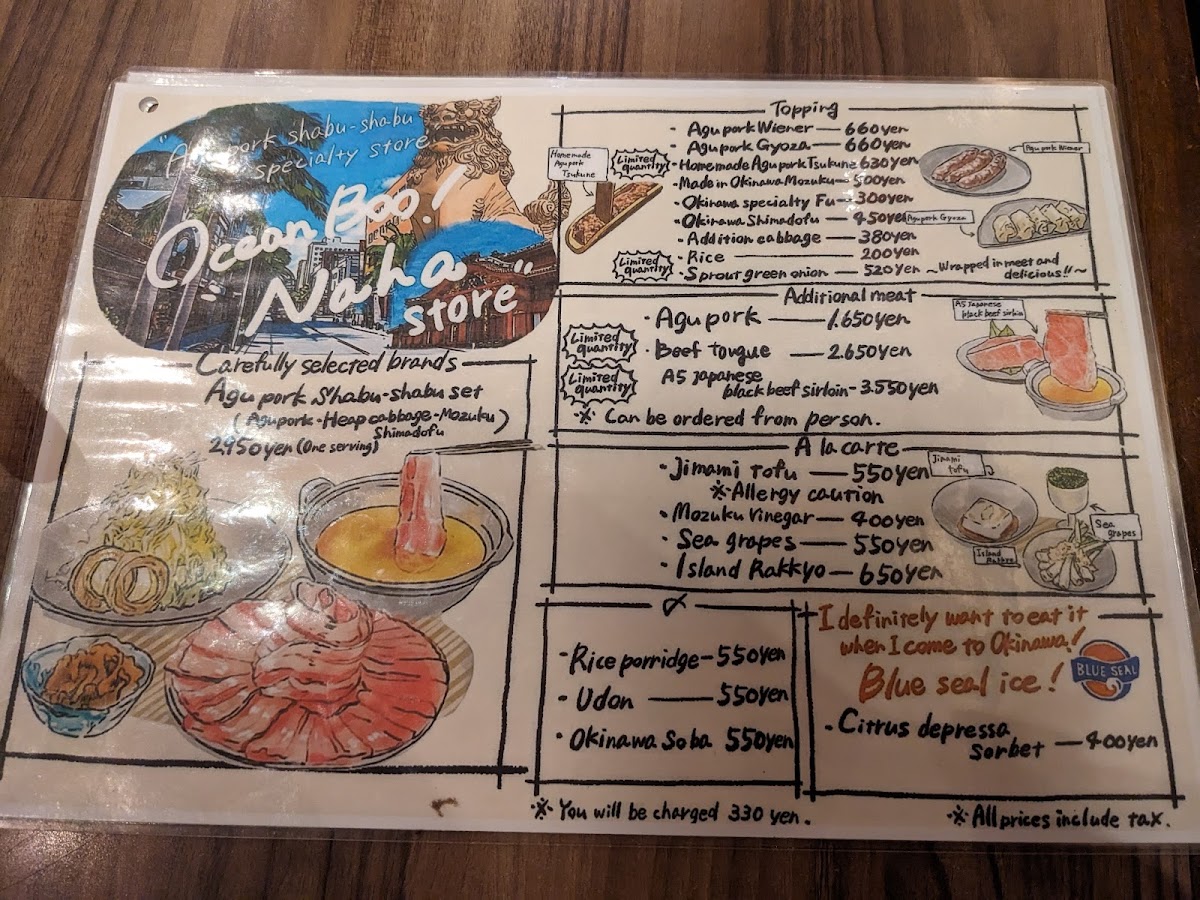 "Agu pork shabu-shabu
specialty store
Ocean Boo!
Naha
store"
Carefully selected brands
Agu pork Shabu-shabu set
(Agupork-Heap cabbage-Mozuku)
Shimadofu
2950yen (One serving)
Topping
・Agu pork Wiener — 660yen
・Agu pork Gyoza — 660yen
Limited quantity
・Homemade Agu pork Tsukune 630yen
・Made in Okinawa Mozuku — 500yen
・Okinawa specialty Fu — 300yen
・Okinawa Shimadofu — 450yen
・Addition cabbage — 380yen
・Rice — 200yen
Limited quantity
・Sprout green onion — 520yen ~Wrapped in meet and
delicious!!~
Homemade
Agu pork
Tsukune
Agu pork Wiener
Agu pork Gyoza
Additional meat
・Agu pork — 1.650yen
Limited quantity
・Beef Tongue — 2.650yen
Limited quantity
A5 Japanese
black beef sirloin - 3.550yen
※ Can be ordered from person.
A5 Japanese
black beef sirloin
A la carte
・Jimami tofu — 550yen
※Allergy caution
・Mozuku vinegar — 400yen
・Sea grapes — 550yen
・Island Rakkyo — 650yen
Jimami
tofu
Island
Rakkyo
Sea
grapes
〆
・Rice porridge - 550yen
・Udon — 550yen
・Okinawa Soba 550yen
I definitely want to eat it
when I come to Okinawa!
Blue seal ice!
BLUE SEAL
・Citrus depressa
sorbet — 400yen
※ You will be charged 330 yen.
※ All prices include tax.